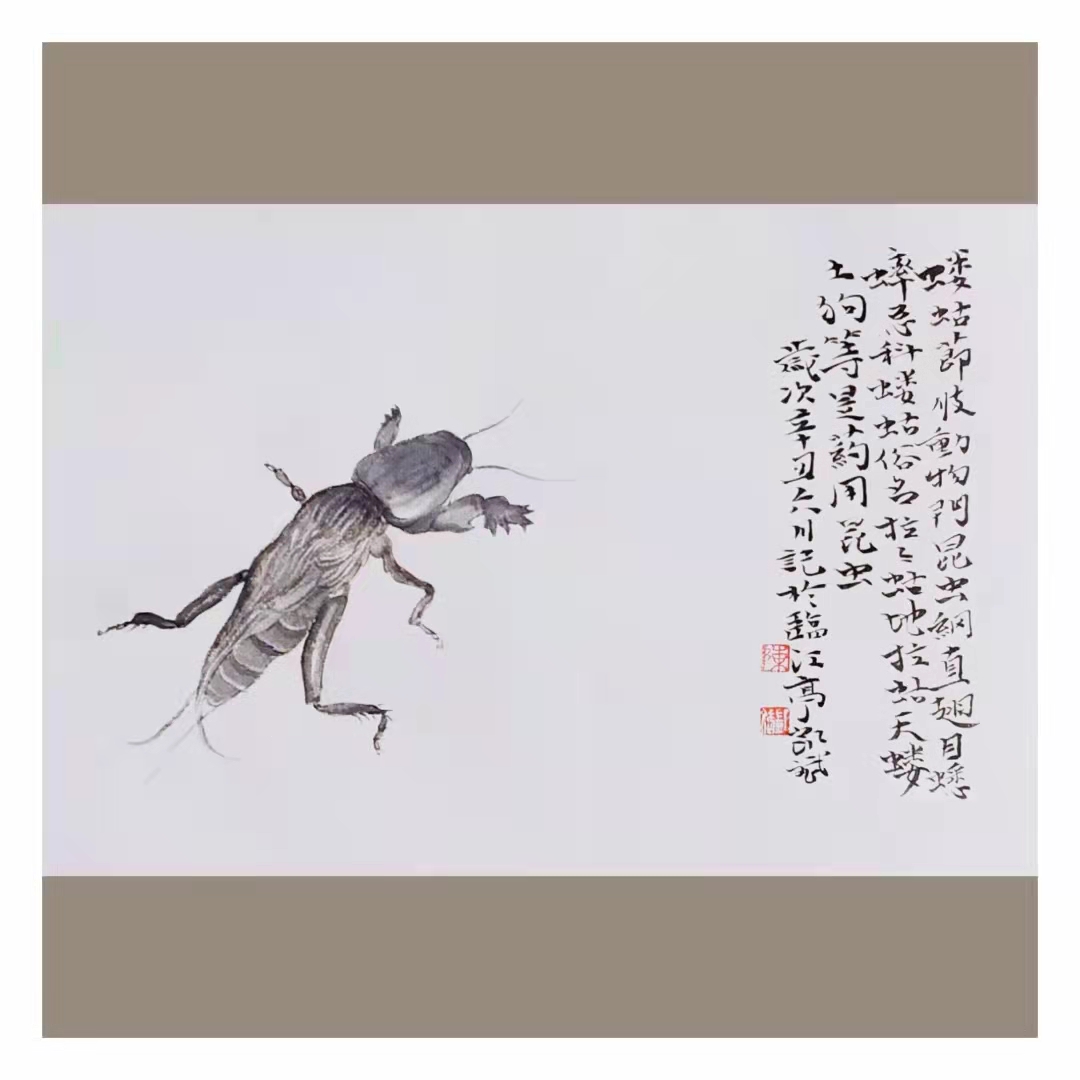 蝼蛄節肢動物門昆虫綱直翅目蟋
蟀总科蝼蛄俗名拉々蛄地拉蛄天蝼
土狗等是葯用昆虫
歲次辛丑六月記於臨江亭敬斌